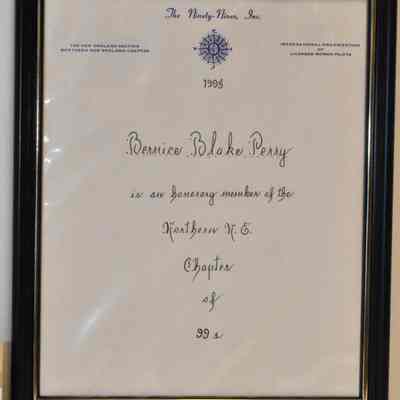 The Ninety-Nines, Inc.
THE NEW ENGLAND SECTION
NORTHERN NEW ENGLAND CHAPTER
INTERNATIONAL ORGANIZATION
OF
LICENSED WOMEN PILOTS
1995
Bernice Blake Perry
is an honorary member of the
Northern N.E.
Chapter
of
99s